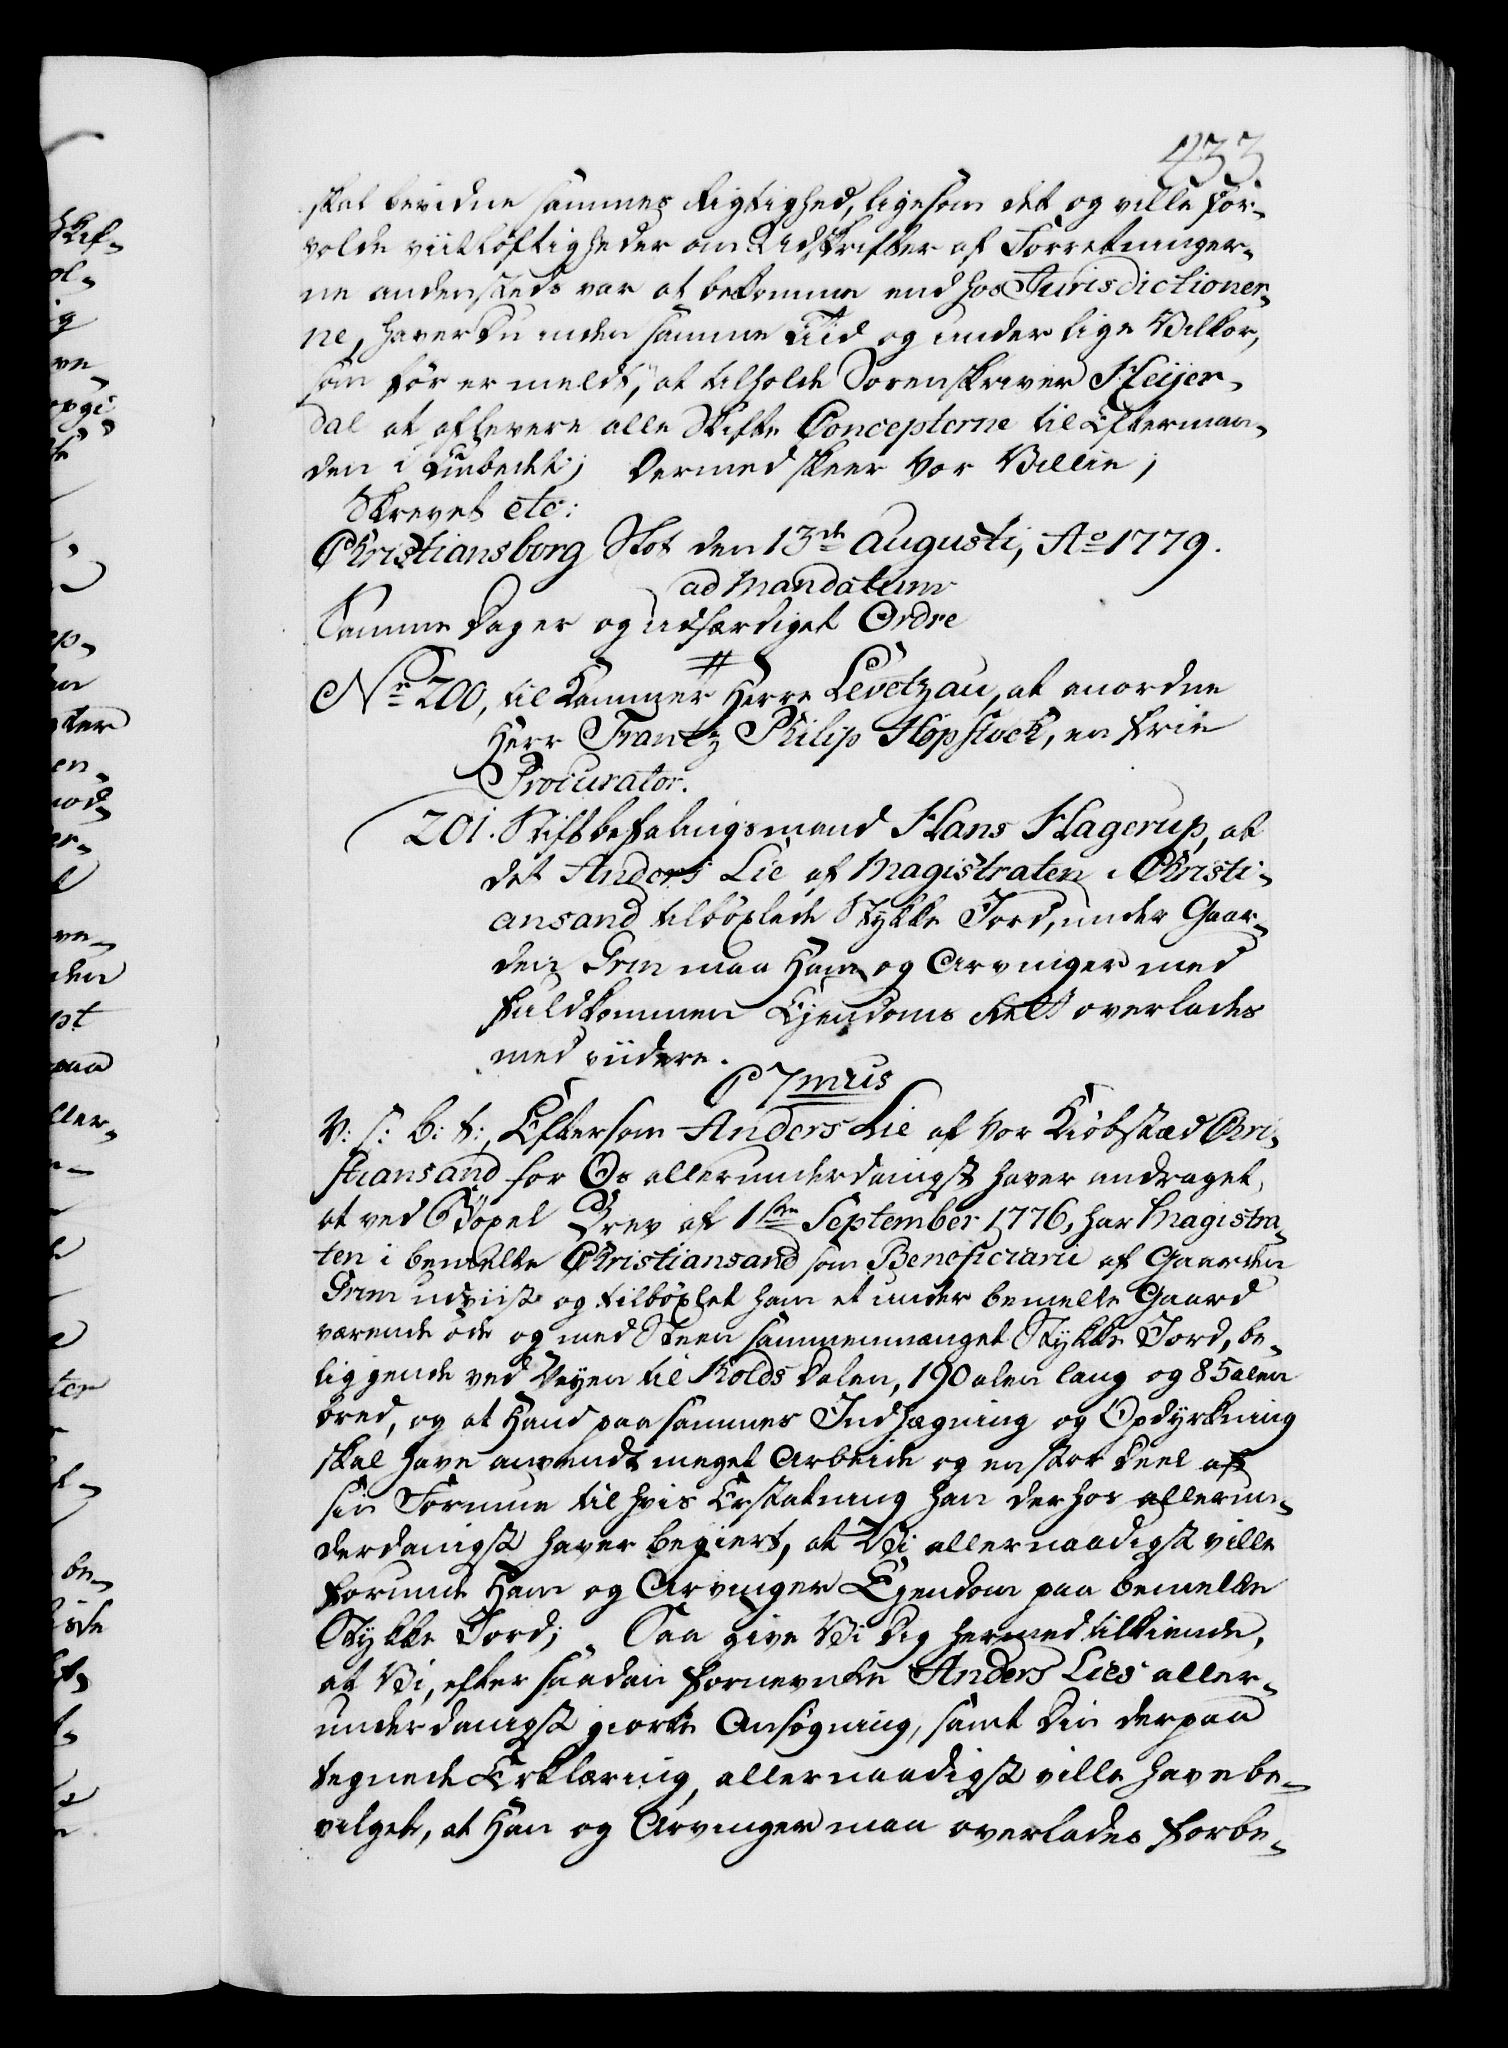 433
skal bevidne sammes Rigtighed, ligesom det og ville for-
volde viitløftigheder om Udskrifter af Forretninger-
ne andenstæds var at bekomme end hos Jurisdictioner-
ne, haver Du inden samme Tid og under lige Vilkor,
som før er meldt, at tilholde Sorenskriver Heijer-
dal at aflevere alle Skifte Concepterne til Efterman-
den i Embedet; Dermed skeer Vor Villie;
Skrevet etc:
Christiansborg Slot den 13de Augusti, Ao 1779.
ad Mandatum
Samme Dag er og udfærdiget Ordre
#
No 200, til Kammer Herre Levetzau, at anordne
Herr Frantz Philip Hopstock, en frie
Procurator.
201. Stiftbefalingsmand Hans Hagerup, at
det Anders Lie af Magistraten i Christi-
ansand tilbøxlede Stykke Jord, under Gaar-
den Grim maa Ham og Arvinger med
fuldkommen Ejendoms Rett overlades
med viidere.
P 7mus
V: S: B: t:, Eftersom Anders Lie af Vor Kiøbstæd Chri-
stiansand for Os allerunderdanigst haver andraget,
at ved Bøxel Brev af 1ste September 1776, har Magistra-
ten i bemelte Christiansand som Beneficiarii af Gaarden
Grim udviist og tilbøxlet ham et under bemelte Gaard
værende øde og med Steen sammenmænget Stykke Jord, be-
liggende ved Veyen til Kolds Dalen, 190 alen lang og 85 alen
bred, og at Hand paa sammes Indhægning og Opdyrkning
skal have anvendt meget Arbeide og en stor Deel af
sin Formue til hvis Erstatning han derhos allerun-
derdanigst haver begiert, at Vi allernaadigst ville
forunde Ham og Arvinger Ejendom paa bemelte
Stykke Jord; Saa give Vi Dig hermed tilkiende,
at Vi, efter saadan fornevnte Anders Lies aller-
underdanigst giorte Ansøgning, samt Din derpaa
tegnede Erklæring, allernaadigst ville have be-
vilget, at Han og Arvinger maa overlades forbe-